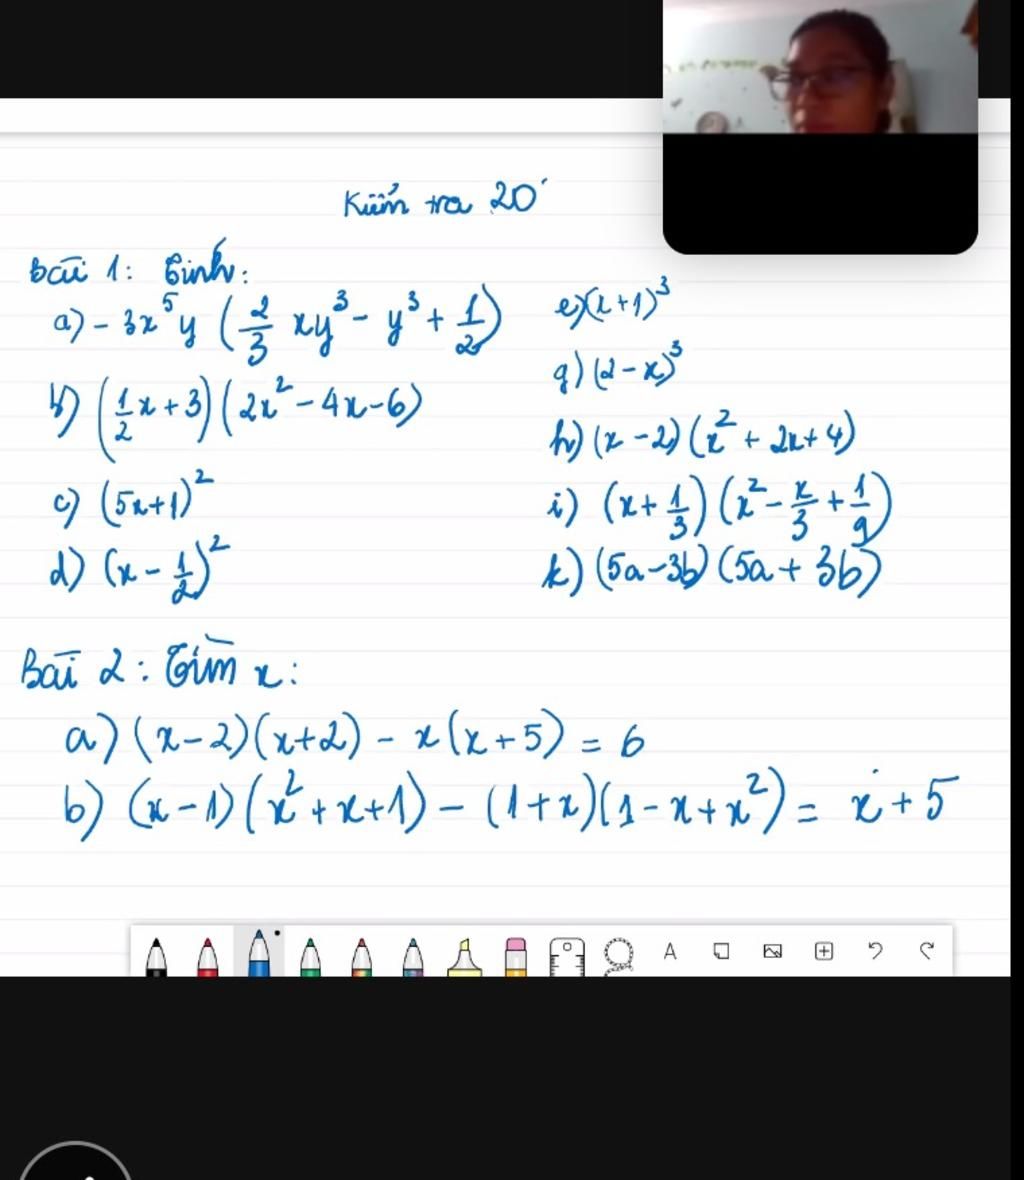 Kiểm tra 20'
Bài 1: Tính:
a) - 3x⁵y (2/3 xy³ - y³ + 1/2)
b) (1/2 x + 3)(2x² - 4x - 6)
c) (5x+1)²
d) (x - 1/2)²
e) (x+1)³
g) (2-x)³
h) (x-2)(x² + 2x + 4)
i) (x + 1/3)(x² - x/3 + 1/9)
k) (5a-3b)(5a+3b)
Bài 2: Tìm x:
a) (x-2)(x+2) - x(x+5) = 6
b) (x-1)(x²+x+1) - (1+x)(1-x+x²) = x+5
A